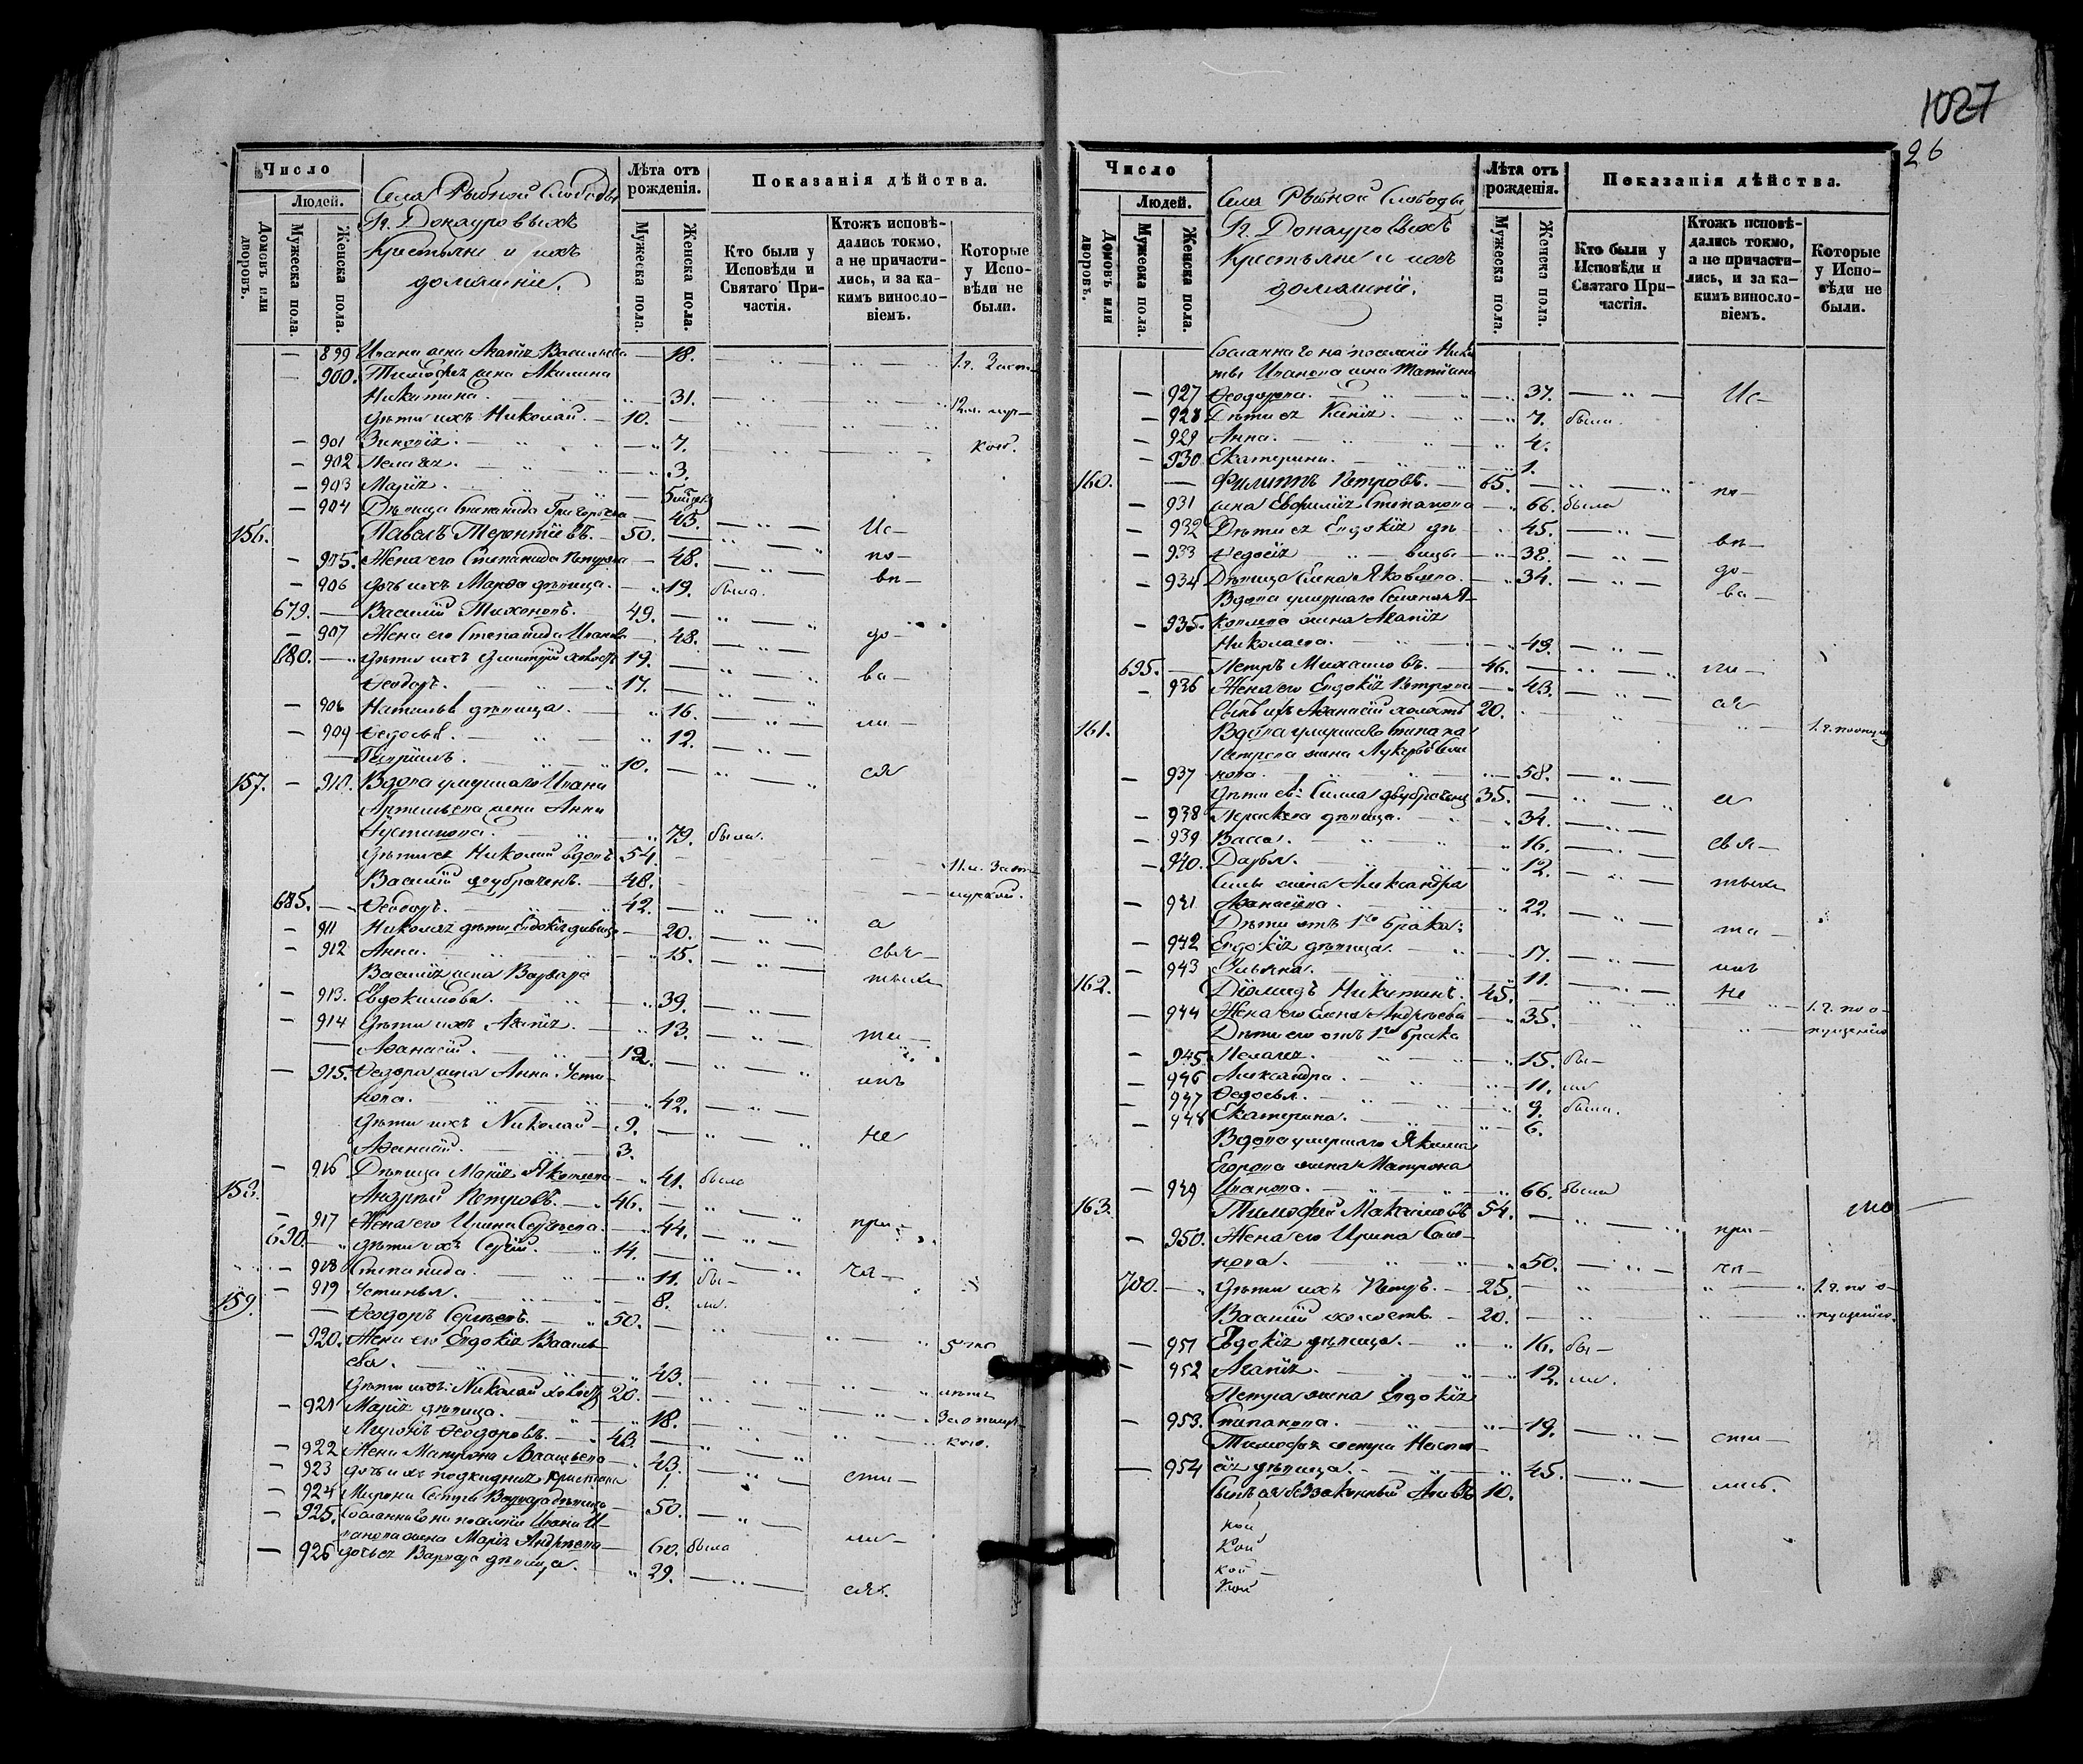 1027
26
Число
Людей.
Домовъ или дворовъ.
Мужеска пола.
Женска пола.
Села Рыбной Слободы
Гг. Донауровыхъ
Крестьяне и ихъ
домашніе.
Лѣта отъ рожденія.
Мужеска пола.
Женска пола.
Показанія дѣйства.
Кто были у Исповѣди и Святаго Причастія.
Ктожъ исповѣдались токмо, а не причастились, и за какимъ винословіемъ.
Которые у Исповѣди не были.
— 899 Ивана жена Агапія Васильева — 18.
— 900. Тимофея жена Акилина
Никитина. — 31.
Дѣти ихъ Николай. — 10. —
— 901 Зиновія. — 7.
— 902 Пелагея. — 3.
— 903 Марія. —
— 904 Дѣвица Степанида Григорьева — 43. Ис-
156. Павелъ Терентіевъ. — 50. —
— 905. Жена его Степанида Петрова — 48. по-
— 906 дочь ихъ Марѳа дѣвица. — 19. была. вѣ-
679. — Василій Тихоновъ. — 49. —
— 907 Жена его Степанида Иванова — 48. до-
680. — Дѣти ихъ Димитрій холостъ 19. —
Ѳеодоръ. — 17. — ва-
— 908 Наталья дѣвица. — 16.
— 909 Ѳедосья. — 12. ли-
— Гавріилъ. — 10. — ся
157. — 910. Вдова умершаго Ивана
Артемьева жена Анна
Устинова. — 79. была.
Дѣти ея Николай вдовъ 54. —
Василій двубраченъ. — 48. —
685. — Ѳеодоръ. — 42. —
— 911 Николая дѣти Евдокія дѣвица — 20. а
— 912 Анна. — 15. свя-
Василія жена Варвара тыхъ
— 913. Евдокимова. — 39.
— 914 Дѣти ихъ Агапія. — 13. та-
— Аѳанасій. — 12. —
— 915. Ѳеодора жена Анна Усти- инъ
нова. — 42.
Дѣти ихъ Николай — 9. — не
Аѳанасій. — 3.
— 916 Дѣвица Марія Яковлева — 41. была
158. Андрей Петровъ. — 46. —
— 917 Жена его Ирина Сергѣева. — 44. при-
690. — Дѣти ихъ Сергій. — 14. —
— 918 Степанида. — 11. бы- ча-
— 919 Устинья. — 8. ли.
159. — Ѳеодоръ Сергѣевъ. — 50. —
— 920. Жена его Евдокія Василь-
ева. — 43.
Дѣти ихъ: Николай холостъ 20. —
— 921 Марія дѣвица. — 18.
Миронъ Ѳеодоровъ. — 43. —
— 922 Жена Матрона Васильева — 43.
— 923 дочь ихъ подкидная Христина 1. сти-
— 924 Мирона Сестра Варвара дѣвица — 50.
— 925. Сосланнаго на поселеніе Ивана И-
ванова жена Марія Андреева — 60. была ли-
— 926 дочь ея Варвара дѣвица. — 29. ся.
Число
Людей.
Домовъ или дворовъ.
Мужеска пола.
Женска пола.
Села Рыбной Слободы
Гг. Донауровыхъ
Крестьяне и ихъ
домашніе.
Лѣта отъ рожденія.
Мужеска пола.
Женска пола.
Показанія дѣйства.
Кто были у Исповѣди и Святаго Причастія.
Ктожъ исповѣдались токмо, а не причастились, и за какимъ винословіемъ.
Которые у Исповѣди не были.
Сосланнаго на поселеніе Ники-
ты Иванова жена Татіана
— 927 Ѳеодорова. — 37. Ис-
— 928 Дѣти ея Ксенія. — 7. была.
— 929 Анна. — 4.
— 930 Екатерина. — 1.
160. — Филиппъ Петровъ. — 65. — по-
— 931 жена Евфимія Степанова — 66. была
— 932 Дѣти ея Евдокія дѣ- — 45. вѣ-
— 933 Ѳедосія — вицы — 38. до-
— 934 Дѣвица Елена Яковлева. — 34. ва-
Вдова умершаго Семена Я-
— 935. ковлева жена Агапія
Николаева. — 49.
695. — Петръ Михаиловъ. — 46. — ли-
— 936 Жена его Евдокія Петрова — 43. ся
Сынъ ихъ Аѳанасій холостъ 20.
161. Вдова умершаго Степана
Петрова жена Лукерья Семе-
— 937 нова. — 58.
Дѣти ея: Симеонъ двубраченъ 35. — а
— 938 Параскева дѣвица. — 34.
— 939 Васса. — 16. свя-
— 940. Дарья. — 12. тыхъ
жена Александра
— 941 Аѳанасіева. — 22.
Дѣти отъ 1го брака: та-
— 942 Евдокія дѣвица. — 17.
— 943 Ульяна. — 11. инъ
162. Діомидъ Никитинъ. 45. — не
— 944 Жена его Елена Андреева — 35.
Дѣти его отъ 1го брака
— 945. Пелагея. — 15. бы-
— 946 Александра. — 11. ли
— 947 Ѳедосья. — 9. были.
— 948 Екатерина. — 6.
Вдова умершаго Якима
Егорова жена Матрона
— 949 Иванова. — 66. была
163. Тимофей Максимовъ 54. — при-
— 950. Жена его Ирина Семе-
нова. — 50. ча-
700. — Дѣти ихъ Петръ. — 25. —
Василій холостъ — 20. —
— 951 Евдокія дѣвица. — 16. бы-
— 952 Агапія. — 12. ли.
Петра жена Евдокія
— 953. Степанова. — 19. сти-
Тимофея сестра Наста-
— 954 сія дѣвица. — 45. лись.
Сынъ ея беззаконный 10.